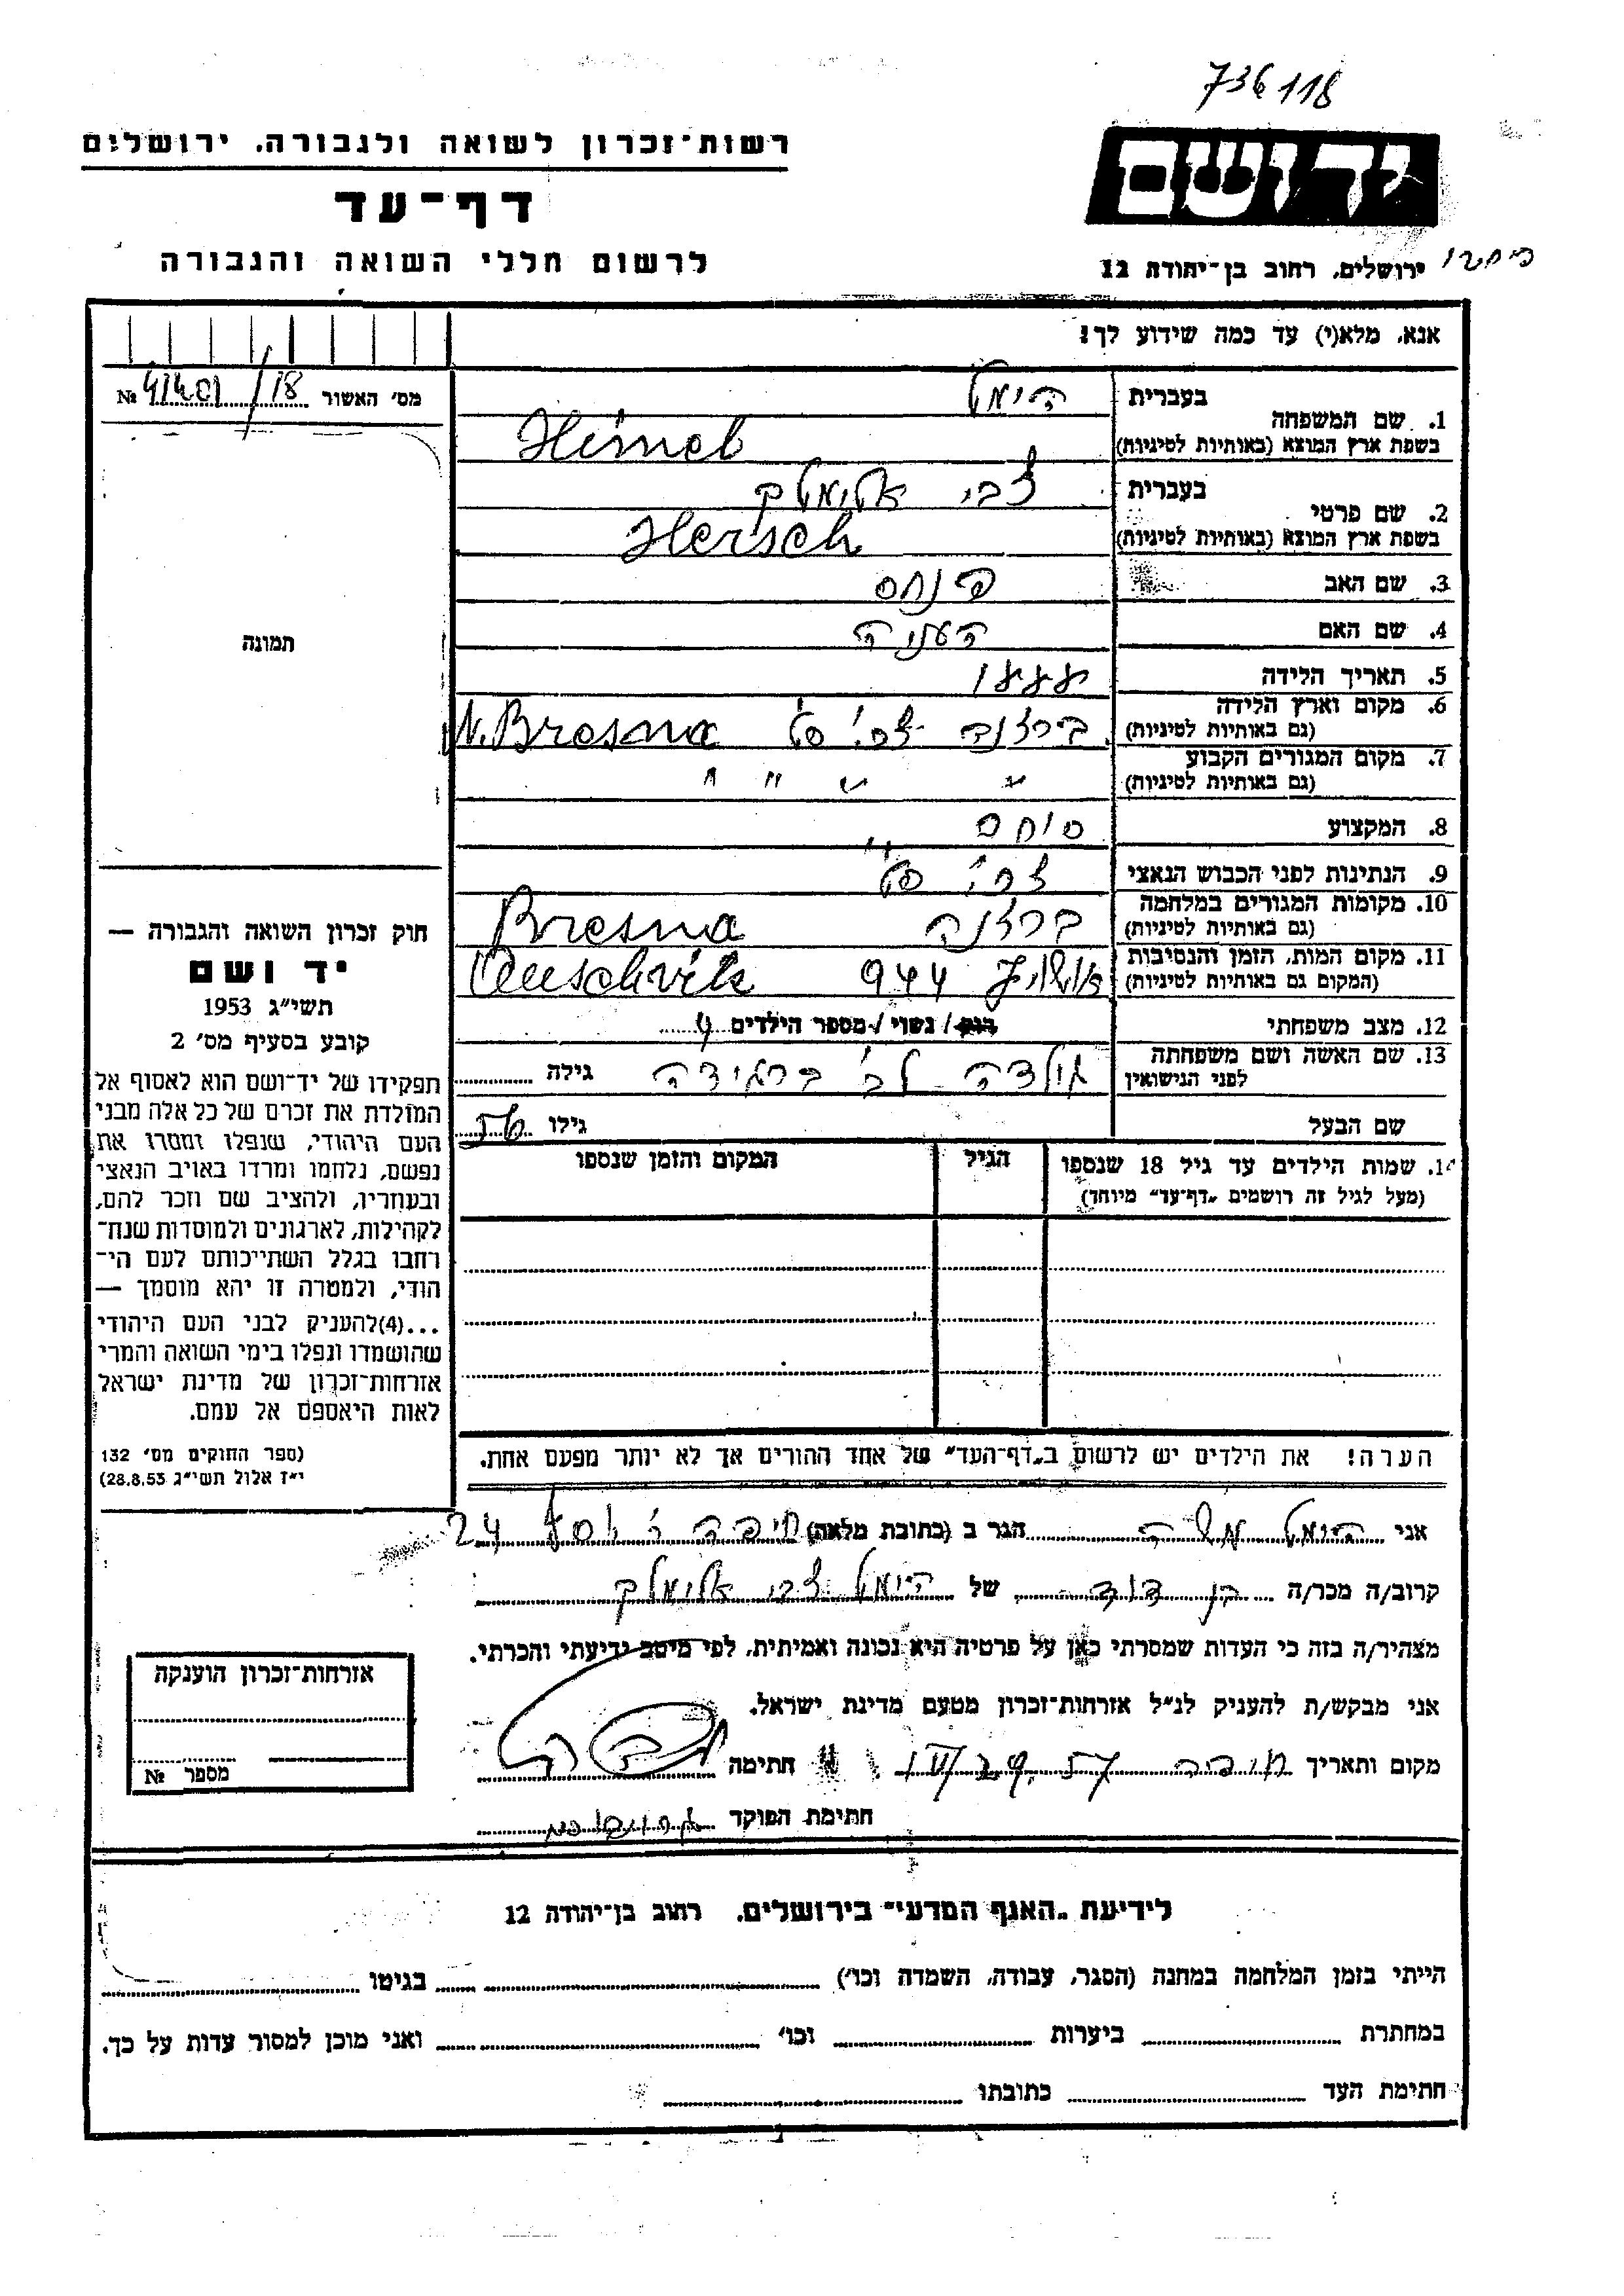 736118
רשות־זכרון לשואה ולגבורה. ירושלים
יד ושם
דף־עד
לרשום חללי השואה והגבורה
ירושלים. רחוב בן־יהודה 12
אנא. מלא(י) עד כמה שידוע לך!
מס׳ האשור 18/41401 №
1. שם המשפחה
בעברית הימל
בשפת ארץ המוצא (באותיות לטיניות) Himel
2. שם פרטי
בעברית צבי אלימלך
בשפת ארץ המוצא (באותיות לטיניות) Hersch
3. שם האב פנחס
4. שם האם
5. תאריך הלידה 1888
6. מקום וארץ הלידה ברזנה צ׳כ׳ סל N. Bresna
(גם באותיות לטיניות)
7. מקום המגורים הקבוע " " " "
(גם באותיות לטיניות)
8. המקצוע סוחר
9. הנתינות לפני הכבוש הנאצי צ׳כ׳ סל
10. מקומות המגורים במלחמה ברזנה Bresna
(גם באותיות לטיניות)
11. מקום המות. הזמן והנסיבות אושויץ 944 Auschvitz
(המקום גם באותיות לטיניות)
12. מצב משפחתי רווק / נשוי / מספר הילדים 4
13. שם האשה ושם משפחתה
לפני הנישואין גולדה לב׳ גילה
שם הבעל גילו 56
14. שמות הילדים עד גיל 18 שנספו
(מעל לגיל זה רושמים „דף־עד״ מיוחד)
הגיל
המקום והזמן שנספו
תמונה
חוק זכרון השואה והגבורה —
יד ושם
תשי״ג 1953
קובע בסעיף מס׳ 2
תפקידו של יד־ושם הוא לאסוף אל
המולדת את זכרם של כל אלה מבני
העם היהודי, שנפלו ומסרו את
נפשם, נלחמו ומרדו באויב הנאצי
ובעוזריו, ולהציב שם וזכר להם,
לקהילות, לארגונים ולמוסדות שנח־
רחבו בגלל השתייכותם לעם הי־
הודי, ולמטרה זו יהא מוסמך —
...(4)להעניק לבני העם היהודי
שהושמדו ונפלו בימי השואה והמרי
אזרחות־זכרון של מדינת ישראל
לאות היאספם אל עמם.
(ספר החוקים מס׳ 132
י״ז אלול תשי״ג 28.8.53)
הערה! את הילדים יש לרשום ב„דף־העד״ של אחד ההורים אך לא יותר מפעם אחת.
אני הימל משה הגר ב (כתובת מלאה) חיפה 24
קרוב/ה מכר/ה בן דוד של הימל צבי אלימלך
מצהיר/ה בזה כי העדות שמסרתי כאן על פרטיה היא נכונה ואמיתית. לפי מיטב ידיעתי והכרתי.
אני מבקש/ת להעניק לנ״ל אזרחות־זכרון מטעם מדינת ישראל.
מקום ותאריך חיפה חתימה
חתימת הפוקד
אזרחות־זכרון הוענקה
מספר №
לידיעת „האגף המדעי״ בירושלים. רחוב בן־יהודה 12
הייתי בזמן המלחמה במחנה (הסגר, עבודה, השמדה וכו׳) בגיטו
במחתרת ביערות וכו׳ ואני מוכן למסור עדות על כך.
חתימת העד כתובתו